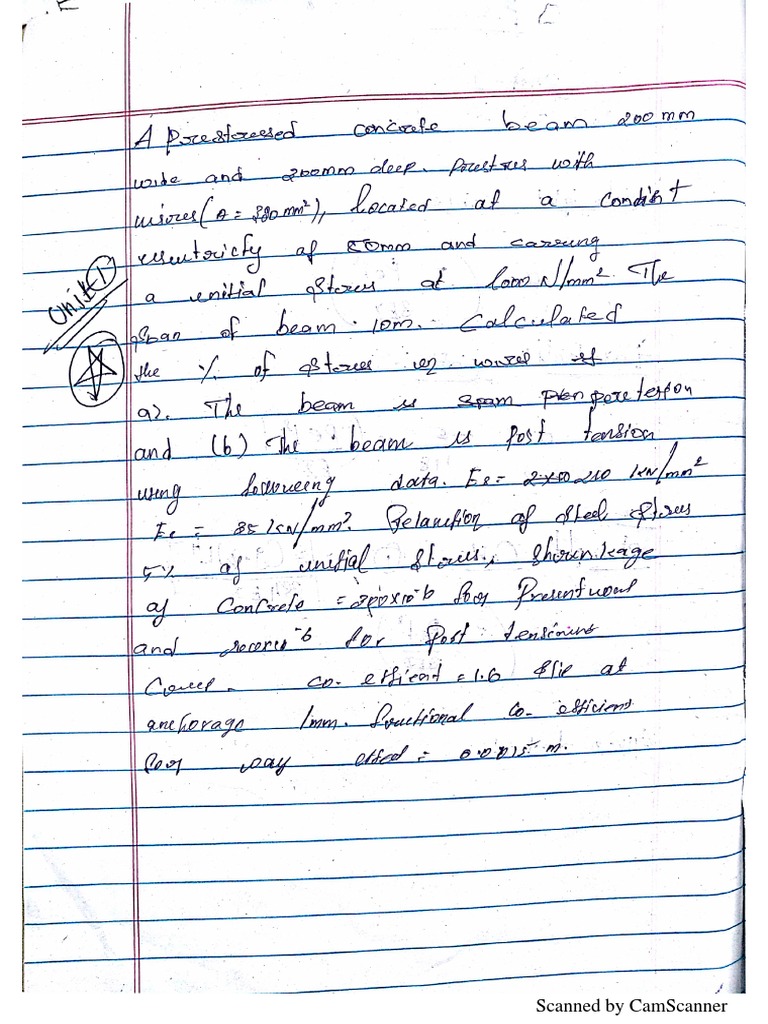 A prestressed concrete beam 200 mm
wide and 300mm deep. prestres with
wires (A = 320mm²), located at a constant
essentricity of 50mm and carrung
Unit-1
a enitial stores at 1000 N/mm². The
span of beam . 10m. Calculated
the % of stores in wires if
a). The beam is spam pren pretension
and (b) The beam is post tension
using followeing data. Es = 2x00 210 kN/mm²
Ec = 35 kN/mm². Relanction of steel stores
5% of unitial stores, shorinkage
of concrete = 300x10⁻⁶ for Presentuous
and for Post tensinins
co-efficient = 1.6 slip at
anchorage 1mm. fructional co-efficient
for way effed = 0.0015 m.
Scanned by CamScanner